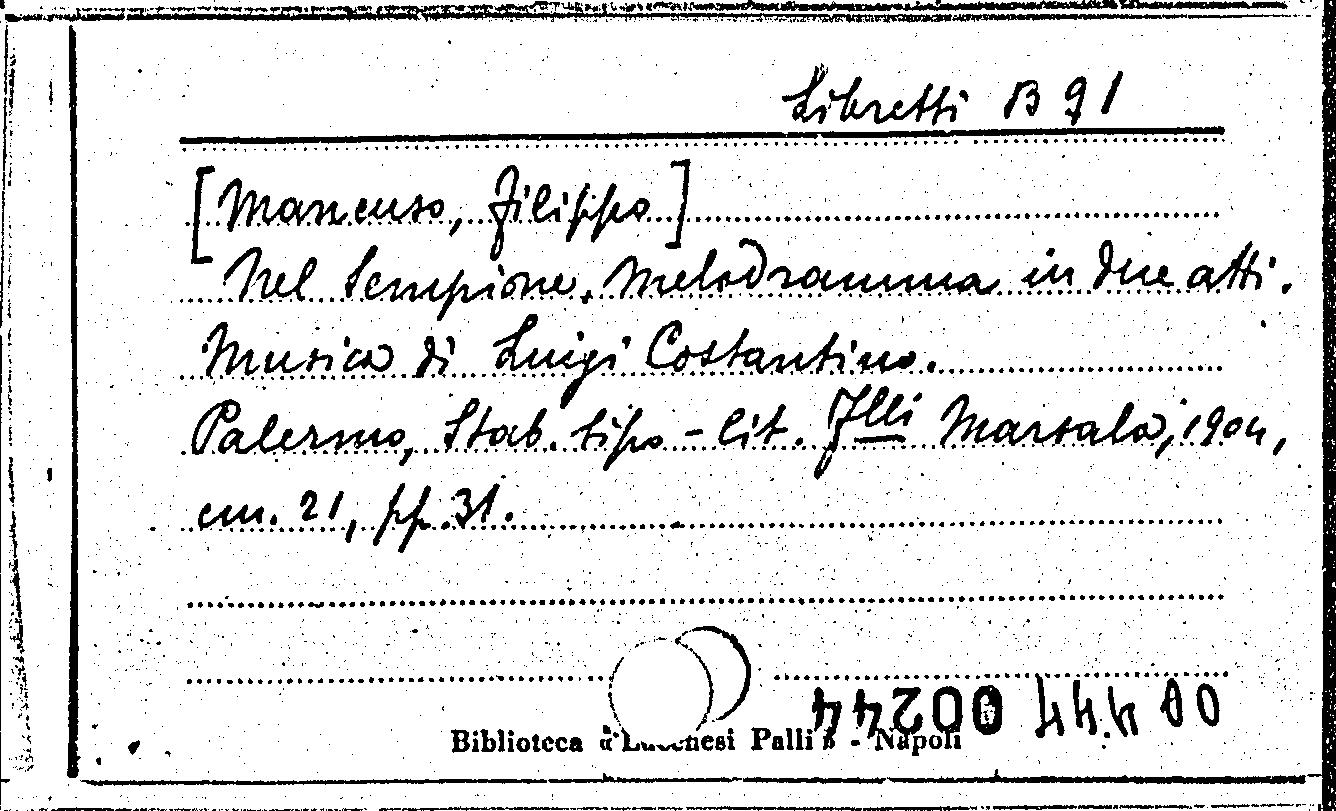 Libretti B 91
[Mancuso, Filippo]
Nel Sempione. Melodramma in due atti.
Musica di Luigi Costantino.
Palermo, Stab. tipo-lit. Flli Marsala, 1904,
cm. 21, pp. 31.
00244
Biblioteca "Lucchesi Palli" - Napoli